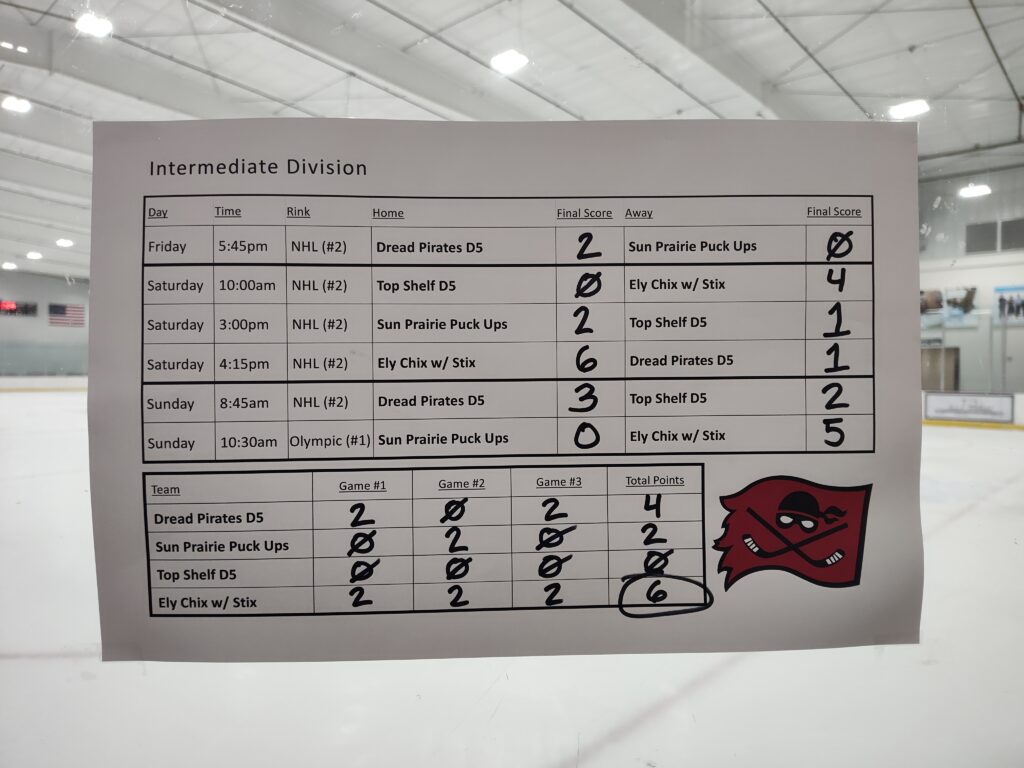 Intermediate Division
Day Time Rink Home Final Score Away Final Score
Friday 5:45pm NHL (#2) Dread Pirates D5 2 Sun Prairie Puck Ups 0
Saturday 10:00am NHL (#2) Top Shelf D5 0 Ely Chix w/ Stix 4
Saturday 3:00pm NHL (#2) Sun Prairie Puck Ups 2 Top Shelf D5 1
Saturday 4:15pm NHL (#2) Ely Chix w/ Stix 6 Dread Pirates D5 1
Sunday 8:45am NHL (#2) Dread Pirates D5 3 Top Shelf D5 2
Sunday 10:30am Olympic (#1) Sun Prairie Puck Ups 0 Ely Chix w/ Stix 5
Team Game #1 Game #2 Game #3 Total Points
Dread Pirates D5 2 0 2 4
Sun Prairie Puck Ups 0 2 0 2
Top Shelf D5 0 0 0 0
Ely Chix w/ Stix 2 2 2 6